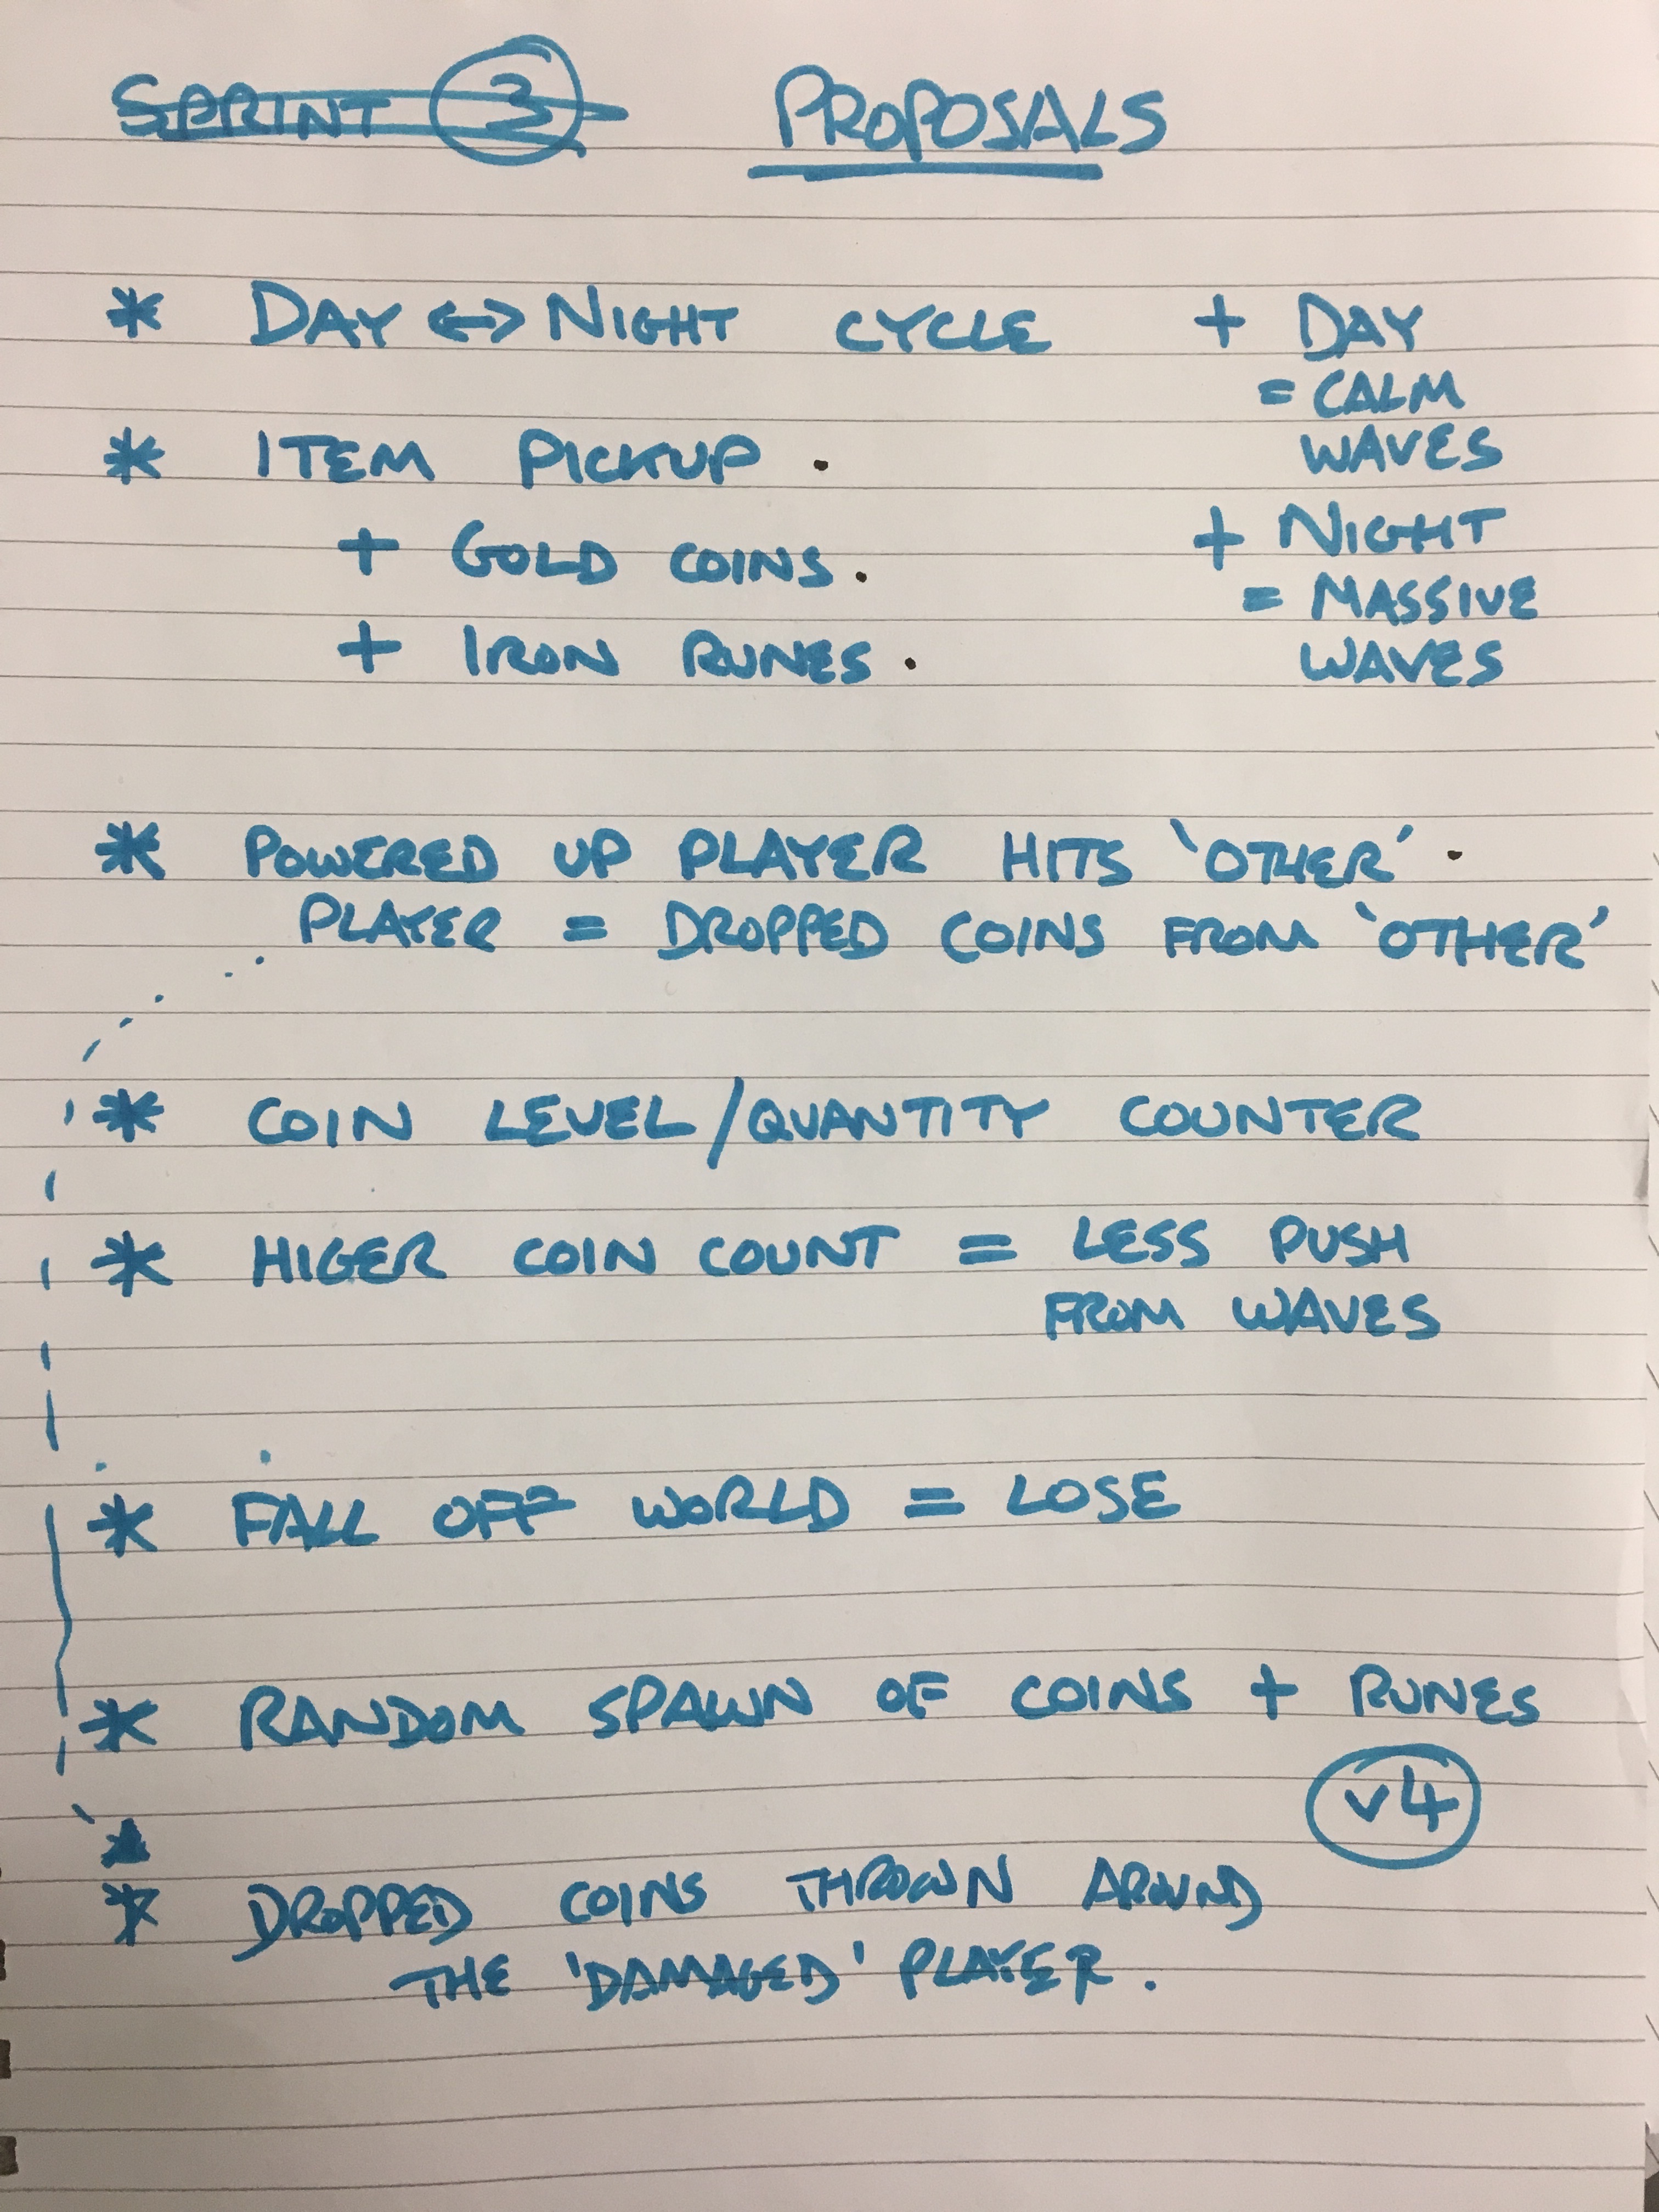 SPRINT 3 PROPOSALS
* DAY <-> NIGHT CYCLE + DAY
= CALM
WAVES
* ITEM PICKUP .
+ GOLD COINS.
+ IRON RUNES.
+ NIGHT
= MASSIVE
WAVES
* POWERED UP PLAYER HITS 'OTHER' .
PLAYER = DROPPED COINS FROM 'OTHER'
* COIN LEVEL/QUANTITY COUNTER
* HIGER COIN COUNT = LESS PUSH
FROM WAVES
* FALL OFF WORLD = LOSE
* RANDOM SPAWN OF COINS + RUNES
v4
* DROPPED COINS THROWN AROUND
THE 'DAMAGED' PLAYER.